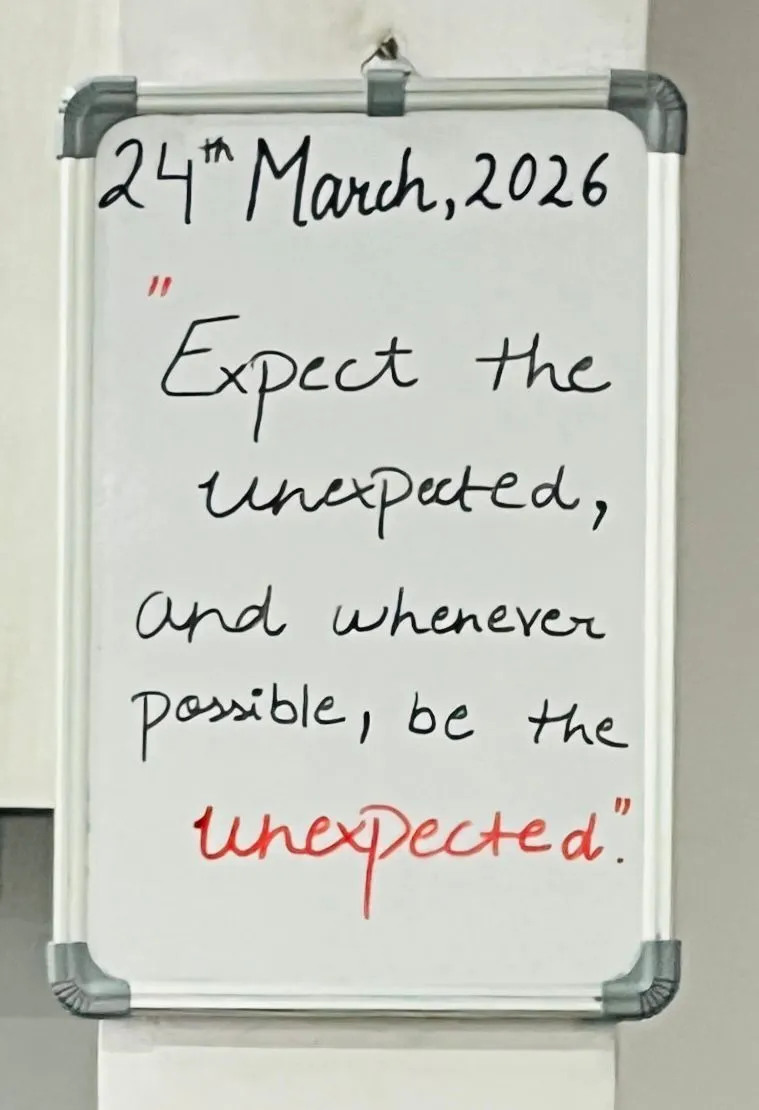 24th March, 2026
"
Expect the
unexpected,
and whenever
possible, be the
unexpected".